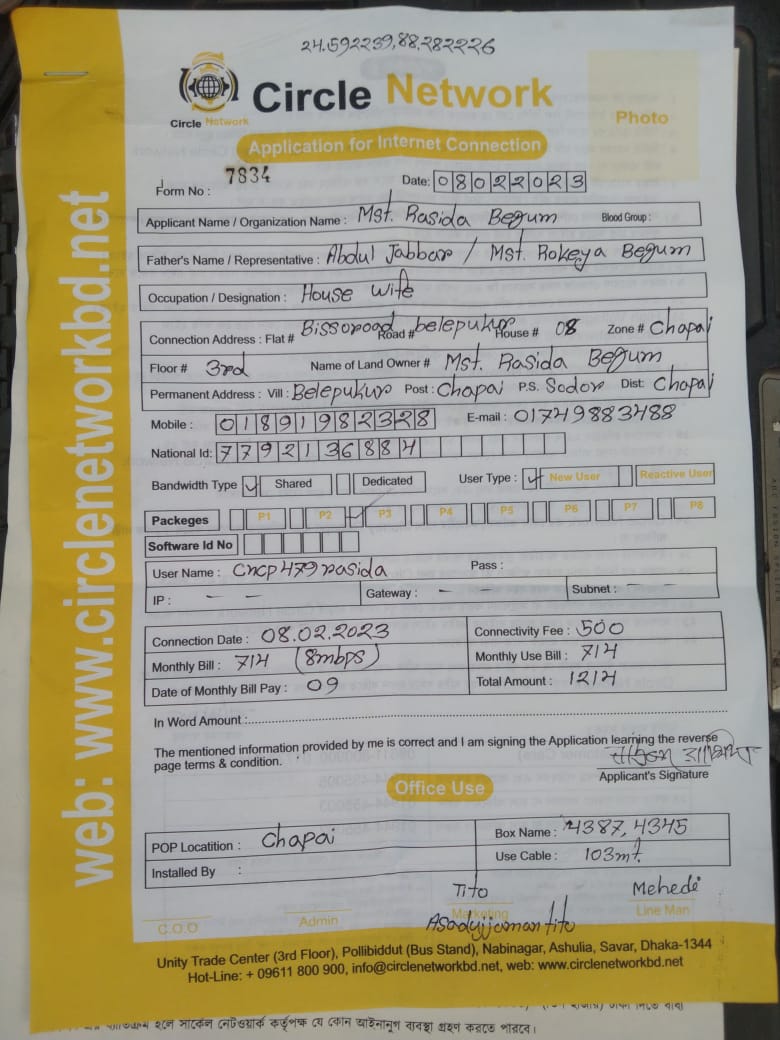 24.592239,88.282226
Circle Network
Circle Network
Photo
Application for Internet Connection
Form No : 7834 Date: 08022023
Applicant Name / Organization Name : Mst. Rasida Begum Blood Group :
Father's Name / Representative : Abdul Jabbar / Mst. Rokeya Begum
Occupation / Designation : House wife
Connection Address : Flat # Bissoroad Road # belepukur House # 08 Zone # Chapai
Floor # 3rd Name of Land Owner # Mst. Rasida Begum
Permanent Address : Vill : Belepukur Post : Chapai P.S. Sodor Dist: Chapai
Mobile : 01891982328 E-mail : 01749883488
National Id: 7792136884
Bandwidth Type Shared Dedicated User Type : New User Reactive User
Packeges P1 P2 P3 P4 P5 P6 P7 P8
Software Id No
User Name : cncp479rasida Pass :
IP : — — Gateway : — — Subnet : — —
Connection Date : 08.02.2023 Connectivity Fee : 500
Monthly Bill : 714 (8mbps) Monthly Use Bill : 714
Date of Monthly Bill Pay : 09 Total Amount : 1214
In Word Amount :
The mentioned information provided by me is correct and I am signing the Application learning the reverse
page terms & condition.
Applicant's Signature
Office Use
POP Locatition : Chapai Box Name : 4387, 4345
Installed By : Use Cable : 103mt.
Tito Mehedi
C.O.O Admin Marketing Line Man
Asadujjaman tito
Unity Trade Center (3rd Floor), Pollibiddut (Bus Stand), Nabinagar, Ashulia, Savar, Dhaka-1344
Hot-Line: + 09611 800 900, info@circlenetworkbd.net, web: www.circlenetworkbd.net
web: www.circlenetworkbd.net
হলে সার্কেল নেটওয়ার্ক কর্তৃপক্ষ যে কোন আইনানুগ ব্যবস্থা গ্রহণ করতে পারবে।